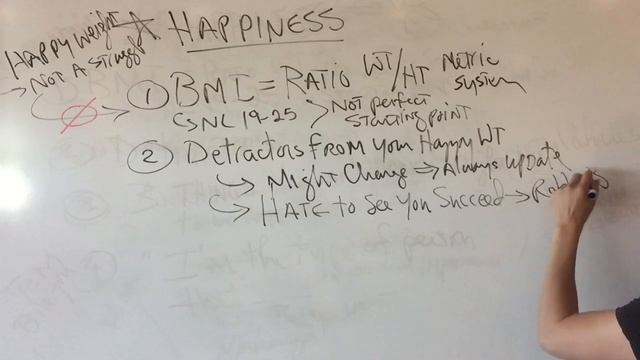 HAPPINESS
HAPPY WEIGHT
→ NOT A STRUGGLE
① BMI = RATIO WT/HT Metric system
↳ NL 19-25 > NOT perfect starting point
② Detractors From Your Happy WT
↳ Might Change ⇒ Always update
↳ HATE to See You Succeed →
"I'm the type of person